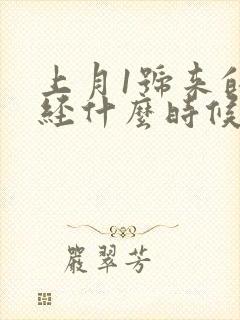 上月1號来的
經什麼時候
嚴翠芳